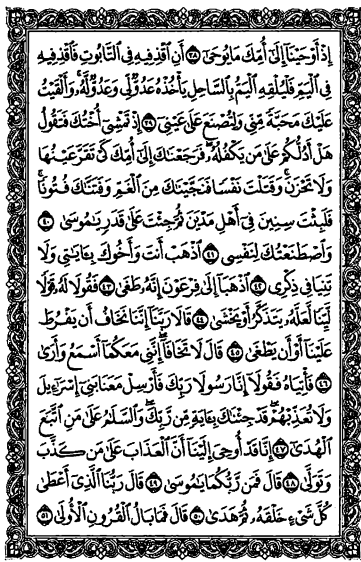 إِذْ أَوْحَيْنَا إِلَىٰ أُمِّكَ مَا يُوحَىٰ ٣٨ أَنِ ٱقْذِفِيهِ فِي ٱلتَّابُوتِ فَٱقْذِفِيهِ
فِي ٱلْيَمِّ فَلْيُلْقِهِ ٱلْيَمُّ بِٱلسَّاحِلِ يَأْخُذْهُ عَدُوٌّ لِّي وَعَدُوٌّ لَّهُۥ ۚ وَأَلْقَيْتُ
عَلَيْكَ مَحَبَّةً مِّنِّي وَلِتُصْنَعَ عَلَىٰ عَيْنِيٓ ٣٩ إِذْ تَمْشِيٓ أُخْتُكَ فَتَقُولُ
هَلْ أَدُلُّكُمْ عَلَىٰ مَن يَكْفُلُهُۥ ۖ فَرَجَعْنَٰكَ إِلَىٰٓ أُمِّكَ كَيْ تَقَرَّ عَيْنُهَا
وَلَا تَحْزَنَ ۚ وَقَتَلْتَ نَفْسًا فَنَجَّيْنَٰكَ مِنَ ٱلْغَمِّ وَفَتَنَّٰكَ فُتُونًا ۚ
فَلَبِثْتَ سِنِينَ فِيٓ أَهْلِ مَدْيَنَ ثُمَّ جِئْتَ عَلَىٰ قَدَرٍ يَٰمُوسَىٰ ٤٠
وَٱصْطَنَعْتُكَ لِنَفْسِي ٤١ ٱذْهَبْ أَنتَ وَأَخُوكَ بِـَٔايَٰتِي وَلَا
تَنِيَا فِي ذِكْرِي ٤٢ ٱذْهَبَآ إِلَىٰ فِرْعَوْنَ إِنَّهُۥ طَغَىٰ ٤٣ فَقُولَا لَهُۥ قَوْلًا
لَّيِّنًا لَّعَلَّهُۥ يَتَذَكَّرُ أَوْ يَخْشَىٰ ٤٤ قَالَا رَبَّنَآ إِنَّنَا نَخَافُ أَن يَفْرُطَ
عَلَيْنَآ أَوْ أَن يَطْغَىٰ ٤٥ قَالَ لَا تَخَافَآ ۖ إِنَّنِي مَعَكُمَآ أَسْمَعُ وَأَرَىٰ
٤٦ فَأْتِيَاهُ فَقُولَآ إِنَّا رَسُولَا رَبِّكَ فَأَرْسِلْ مَعَنَا بَنِيٓ إِسْرَٰٓءِيلَ
وَلَا تُعَذِّبْهُمْ ۖ قَدْ جِئْنَٰكَ بِـَٔايَةٍ مِّن رَّبِّكَ ۖ وَٱلسَّلَٰمُ عَلَىٰ مَنِ ٱتَّبَعَ
ٱلْهُدَىٰٓ ٤٧ إِنَّا قَدْ أُوحِيَ إِلَيْنَآ أَنَّ ٱلْعَذَابَ عَلَىٰ مَن كَذَّبَ
وَتَوَلَّىٰ ٤٨ قَالَ فَمَن رَّبُّكُمَا يَٰمُوسَىٰ ٤٩ قَالَ رَبُّنَا ٱلَّذِيٓ أَعْطَىٰ
كُلَّ شَيْءٍ خَلْقَهُۥ ثُمَّ هَدَىٰ ٥٠ قَالَ فَمَا بَالُ ٱلْقُرُونِ ٱلْأُولَىٰ ٥١